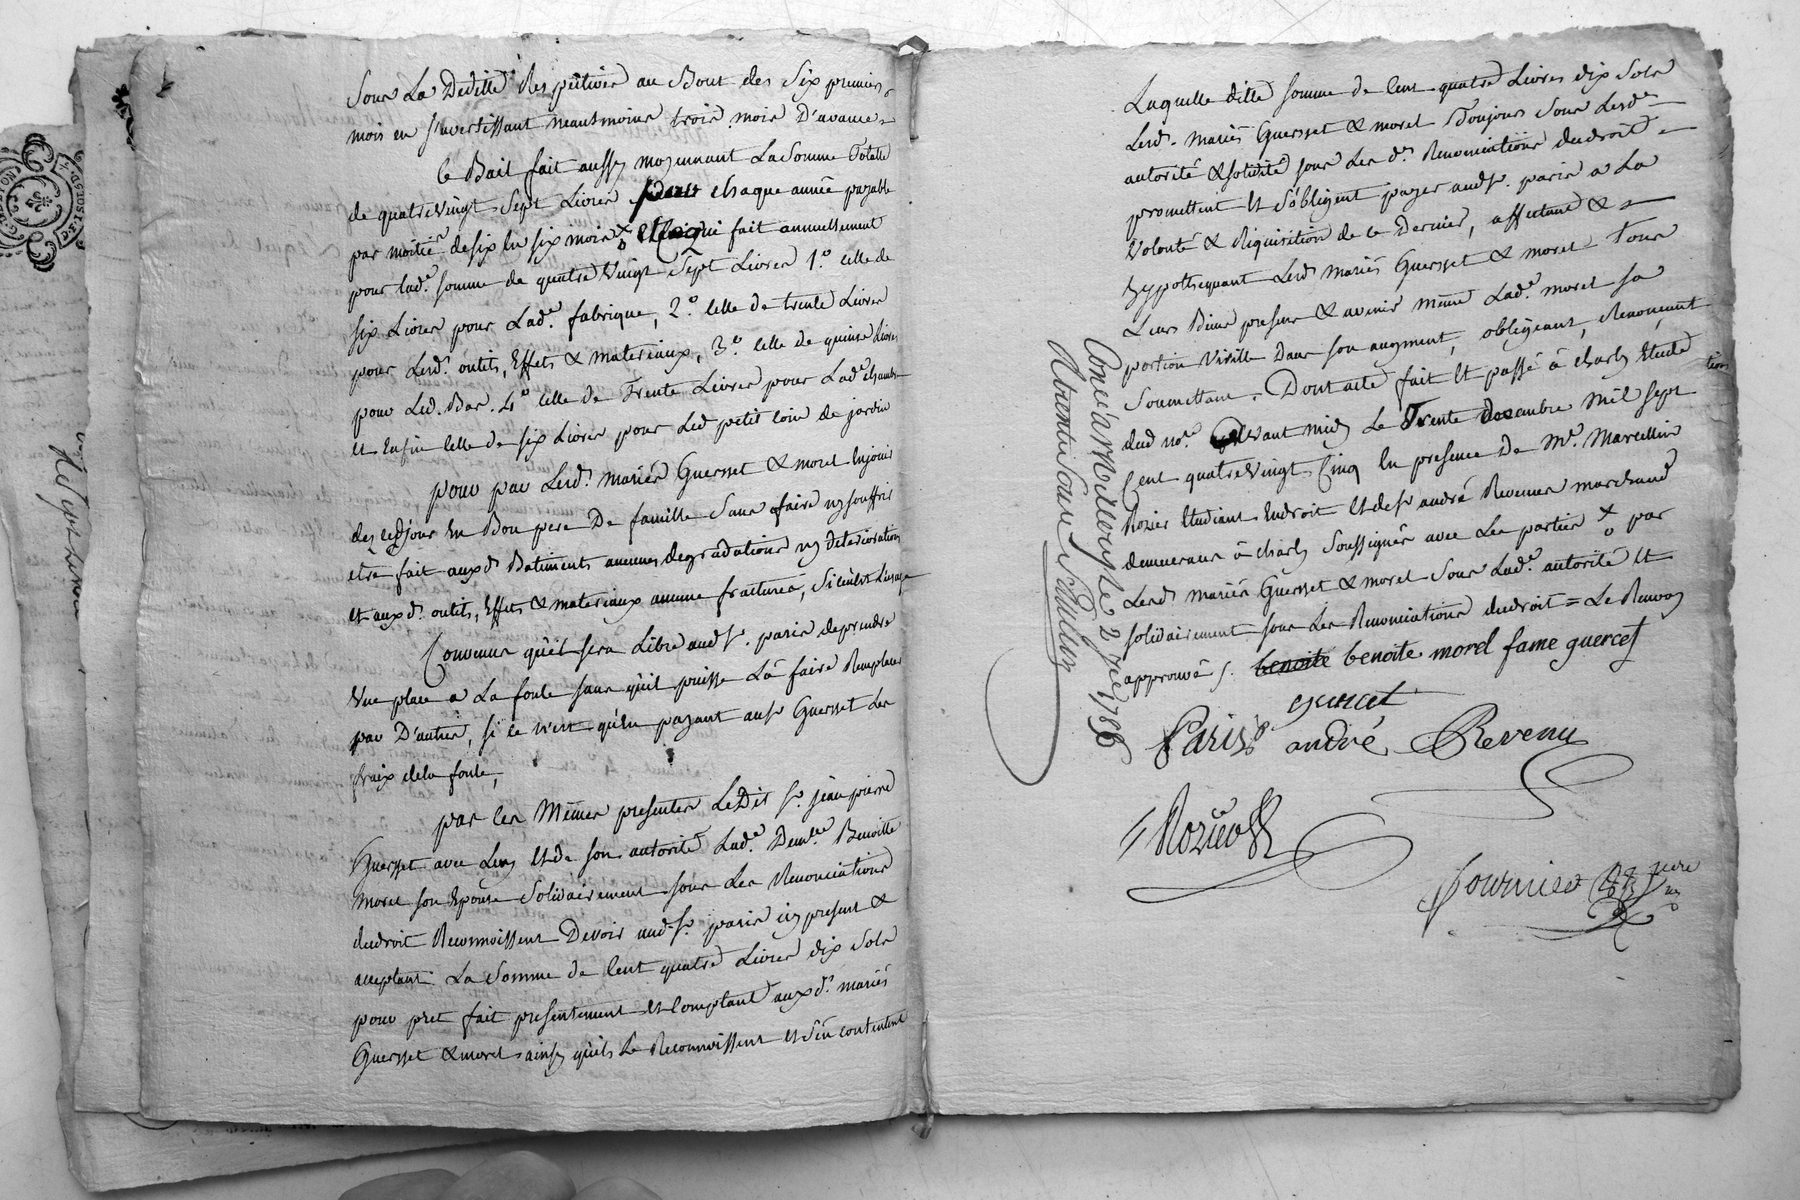 Sous La Deditte Respective au Bout des Six premiers
mois en s'avertissant neantmoins trois mois D'avance
le Bail fait aussy moyennant La Somme Totalle
de quatrevingt Sept Livres pour chaque année payable
par moitié de six en six mois qui fait annuellement
pour lad.e somme de quatre Vingt Sept Livres 1.o celle de
six Livres pour Lad.e fabrique, 2.o celle de trente Livres
pour Lesd. outils, Effets & materiaux, 3.o celle de quinze Livres
pour Led. Bas. 4.o celle de Trente Livres pour Lad.e chambre
et Enfin celle de six Livres pour Led petit coin de jardin
pour par Lesd. mariés Guersset & morel Enjouir
dez cedjour En Bon pere De famille Sans faire ny souffrir
etre fait auxd. Batiments aucunes degradations ny deteriorations
et auxd. outils, Effets & materiaux aucune fractures, Si ce n'est L'usage
Convenus qu'il sera Libre aud Sr. paris de prendre
Une place a La foule sans qu'il puisse La faire Remplacer
par D'autres, si ce n'est qu'en payant au Sr Guersset Les
fraix de la foule,
par les Mêmes presentes Le Dit Sr. jean pierre
Guersset avec Luy Et de son autorité Lad.e Dem.lle Benoitte
Morel son Epouse Solidairement sous Les Renonciations
dudroit Reconnoissent Devoir aud. Sr. paris icy present &
acceptant La Somme de Cent quatre Livres dix Sols
pour pret fait presentement et Comptant aux d. mariés
Guersset & morel ainsy qu'ils Le Reconnoissent et S'en contentent
Laquelle ditte somme de Cent quatre Livres dix Sols
Lesd. mariés Guersset & morel Toujours Sous Lesd.e
autorité & Solidité sous Les d. Renonciations dudroit
promettent Et S'obligent payer aud Sr. paris a La
Volonté & Requisition de ce Dernier, affectant &
hypothequant Lesd mariés Guersset & morel Tous
Leurs Biens presens & avenir même Lad.e morel sa
portion Virille Dans son augment, obligeant, Renonçant
Soumettant. Dont acte fait Et passé à charly Etude
tion
dud no.re avant midy Le Trente decembre Mil sept
Cent quatrevingt Cinq En presence De Mr. Marcellin
Rozier Etudiant Endroit Et de Sr andré Revenu marchand
demeurans à charly Soussignés avec Les parties par
Lesd mariés Guersset & morel Sous Lad.e autorité Et
Solidairement sous Les Renonciations dudroit = Le Renvoy
approuvé /. benoite benoite morel fame guercet
guercet
Paris andré Revenu
Rozier
Fournier
Con.é a Millery le 2 1786